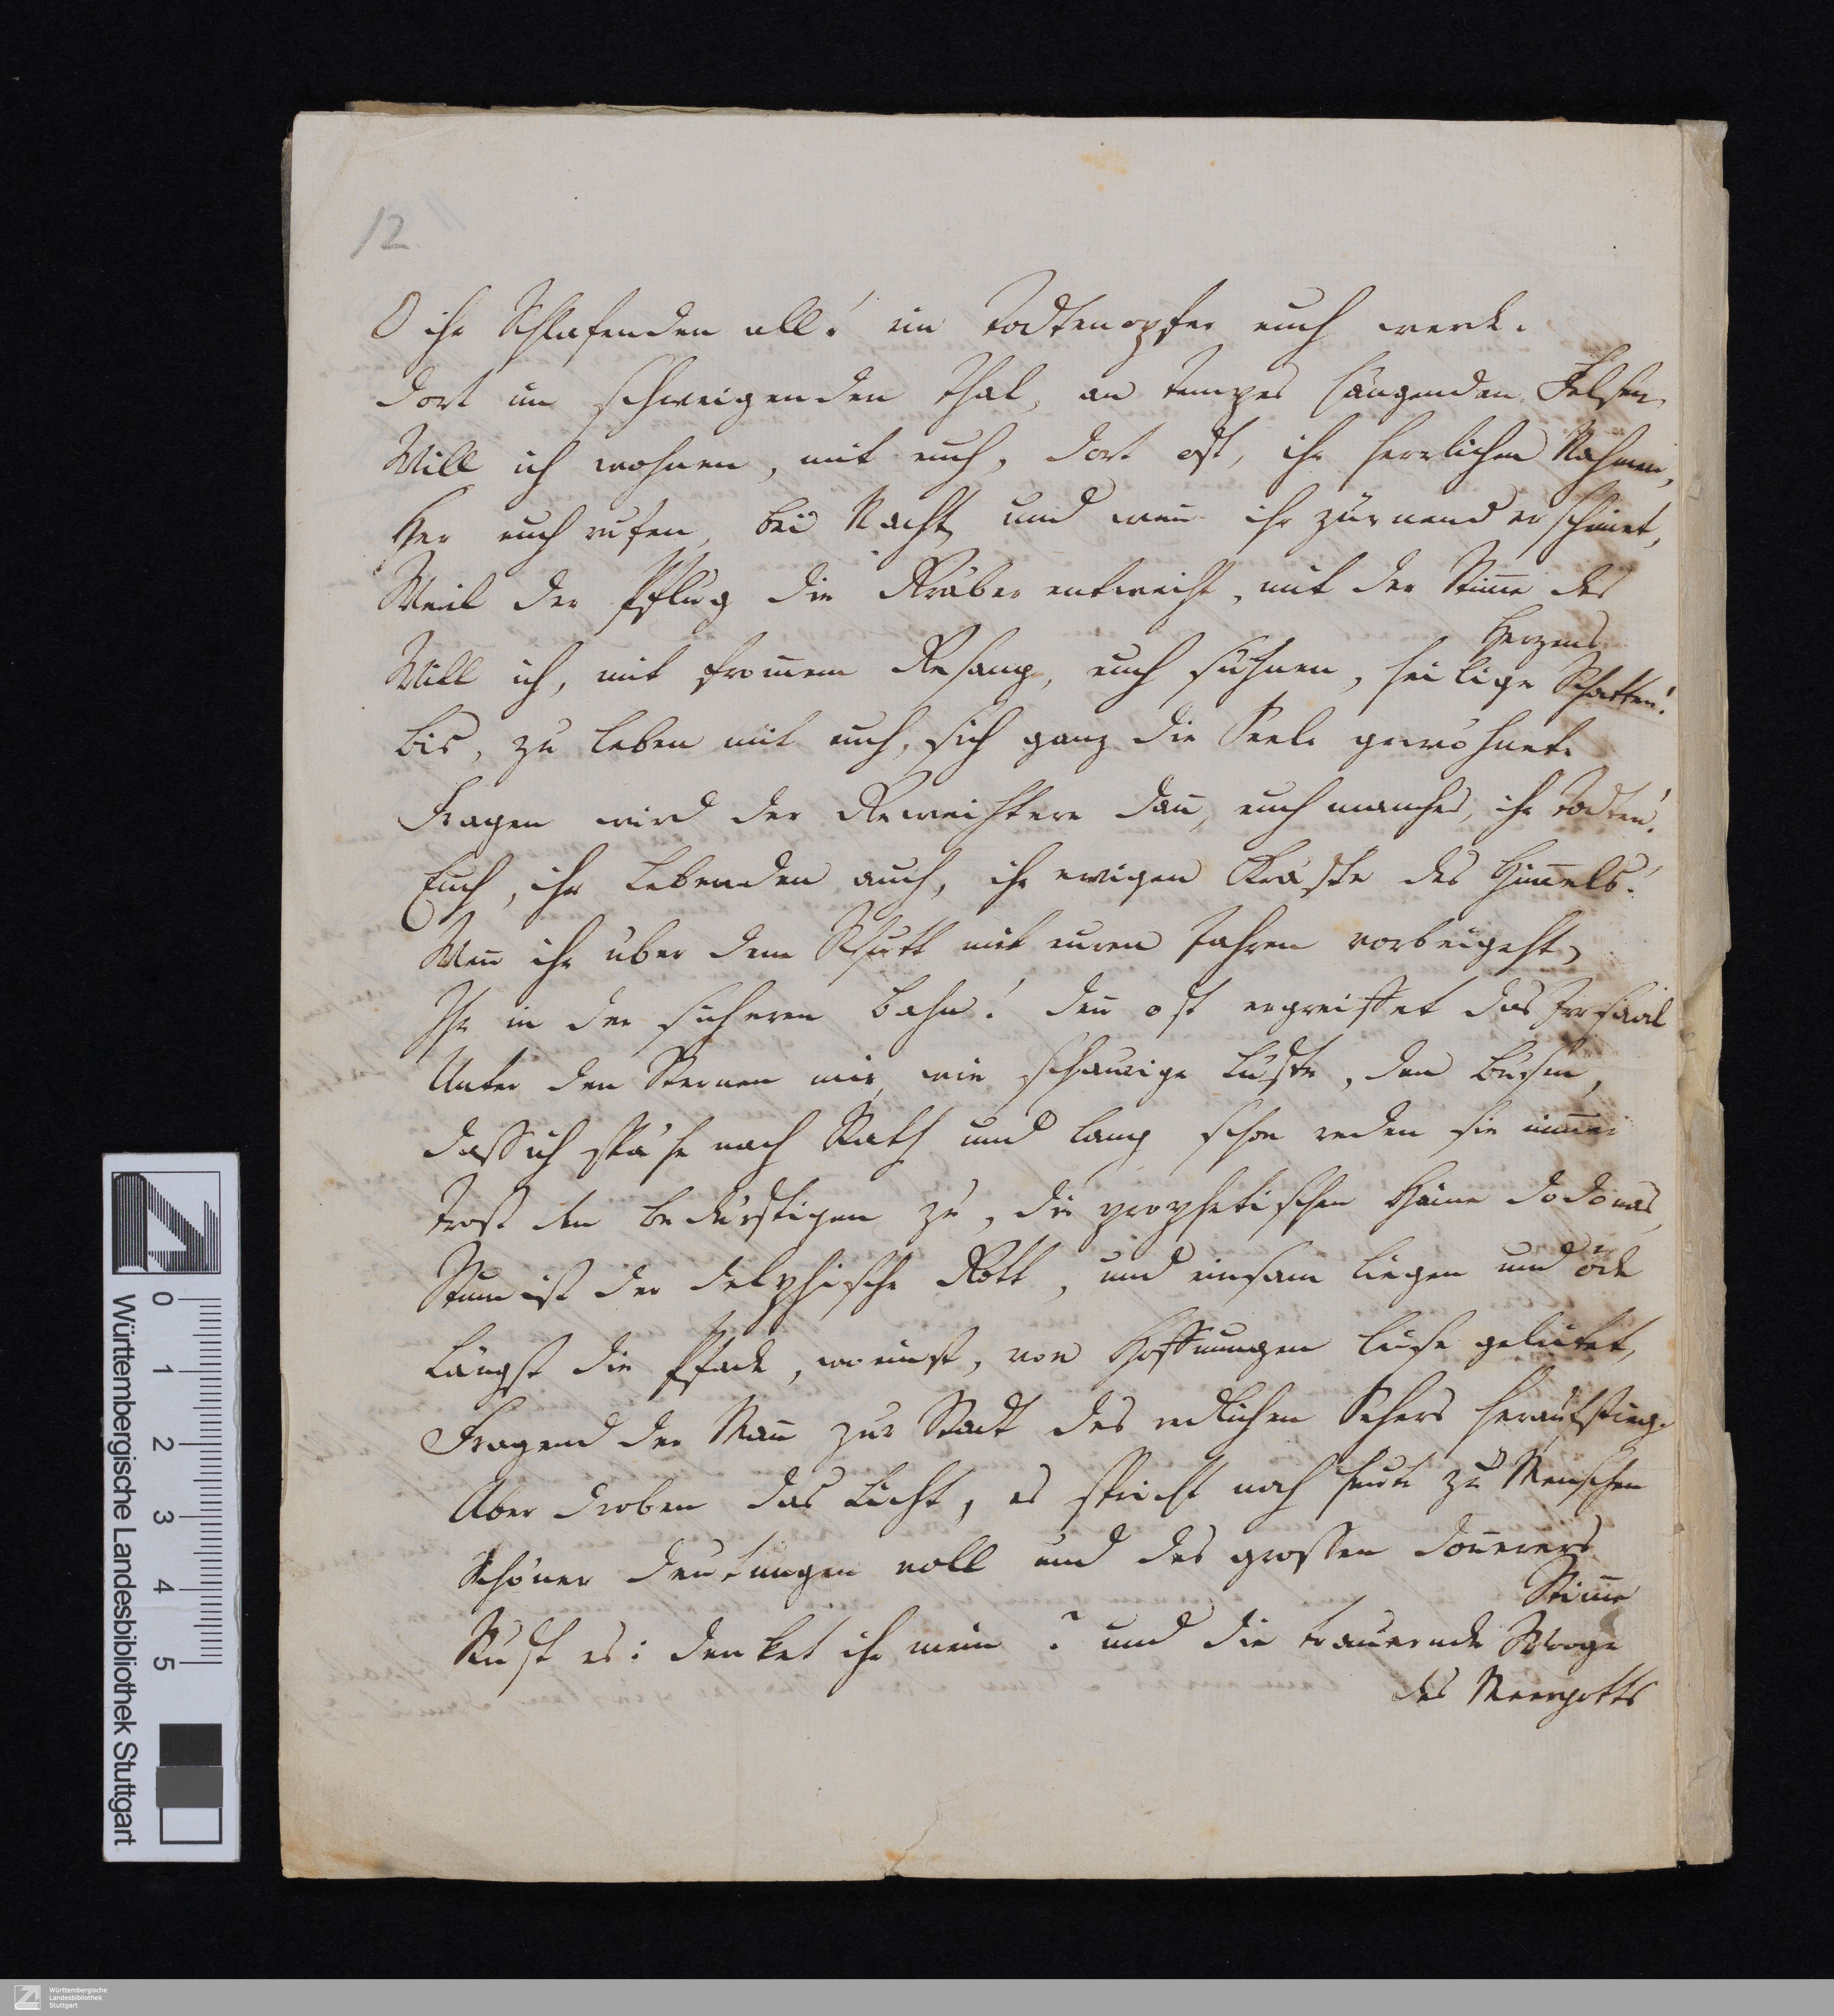 12
O ihr Schlafenden all! ein Todtenopfer euch werde.
Dort im schweigenden Thal, an Tempes hängenden Felsen,
Will ich wohnen, mit euch, dort oft, ihr herrlichen Nahmen,
Her euch rufen, bei Nacht, und weñ ihr zürnend erscheinet,
Weil der Pflug die Gräber entweiht, mit der Stim̃e des
Herzens
Will ich, mit from̃em Gesang, euch sühnen, heilige Schatten!
Bis, zu leben mit euch, sich ganz die Seele gewöhnet.
Fragen wird der Geweihtere dañ, euch manches, ihr Todten!
Euch, ihr Lebenden auch, ihr ewigen Kräfte des Him̃els!
Weñ ihr über dem Schutt mit euren Jahren vorbeigeht,
Ihr in der sicheren Bahn! deñ oft ergreiffet das Irrsaal
Unter den Sternen mir, wie schaurige Lüfte, den Busen,
Daß ich spähe nach Rath und lang schon reden sie nim̃er
Trost den bedürftigen zu, die prophetischen Haine Dodonas,
Stum ist der delphische Gott, und einsam liegen und öde
Längst die Pfade, wo einst, von Hoffnungen leise geleitet,
Fragend der Mañ zur Stadt des redlichen Sehers heraufstieg.
Aber droben das Licht, es spricht noch heute zu Menschen
Schöner Deutungen voll und des großen Doñerers
Stim̃e
Ruft es: denket ihr mein? und die trauernde Wooge
des Meergotts
0
1
2
3
4
5
Württembergische Landesbibliothek Stuttgart
Württembergische
Landesbibliothek
Stuttgart